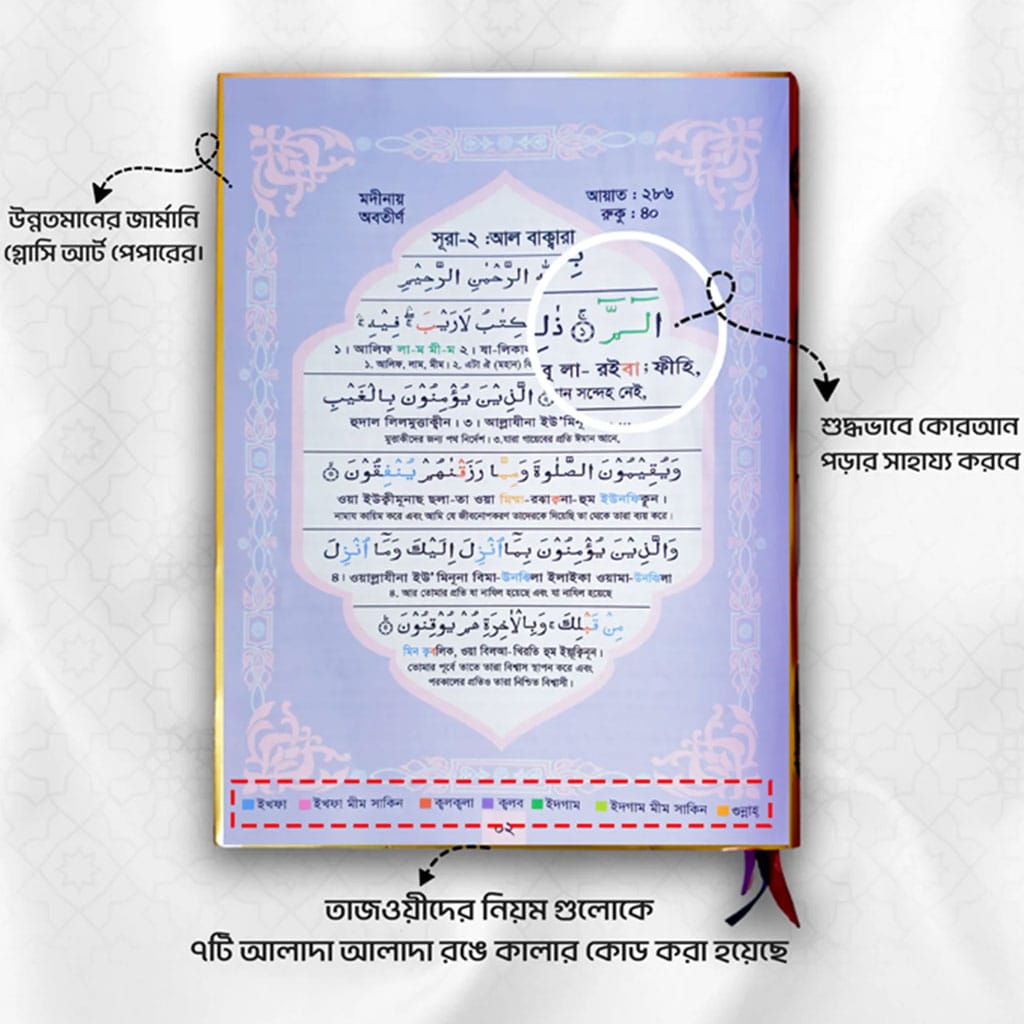 উন্নতমানের জার্মানি
গ্লোসি আর্ট পেপারের।
মদীনায়
অবতীর্ণ
আয়াত : ২৮৬
রুকু : ৪০
সূরা-২ :আল বাক্বারা
الرَّحْمٰنِ الرَّحِيْمِ
الٓمّٓ ۝١ ذٰلِكَ الْكِتٰبُ لَارَيْبَ ۛ فِيْهِ ۛ
১। আলিফ লা-ম মী-ম ২। যা-লিকাল
বু লা- রইবা; ফীহি,
১. আলিফ, লাম, মীম। ২. এটা ঐ (মহান)
সন্দেহ নেই,
الَّذِيْنَ يُؤْمِنُوْنَ بِالْغَيْبِ
হুদাল লিলমুত্তাক্বীন। ৩। আল্লাযীনা ইউ'মিনূ
মুত্তাকীদের জন্য পথ নির্দেশ। ৩.যারা গায়েবের প্রতি ঈমান আনে,
وَيُقِيْمُوْنَ الصَّلٰوةَ وَمِمَّا رَزَقْنٰهُمْ يُنْفِقُوْنَ ۝
ওয়া ইউক্বীমূনাছ ছলা-তা ওয়া মিম্মা-রঝাক্বনা-হুম ইউনফিকূন।
নামায কায়িম করে এবং আমি যে জীবনোপকরণ তাদেরকে দিয়েছি তা থেকে তারা ব্যয় করে।
وَالَّذِيْنَ يُؤْمِنُوْنَ بِمَآ اُنْزِلَ اِلَيْكَ وَمَآ اُنْزِلَ
৪। ওয়াল্লাযীনা ইউ'মিনূনা বিমা-উনঝিলা ইলাইকা ওয়ামা-উনঝিলা
৪. আর তোমার প্রতি যা নাযিল হয়েছে এবং যা নাযিল হয়েছে
مِنْ قَبْلِكَ ۚ وَبِالْاٰخِرَةِ هُمْ يُوْقِنُوْنَ ۝
মিন ক্ববলিক, ওয়া বিলআ-খিরতি হুম ইয়ূক্বিনূন।
তোমার পূর্বে তাতে তারা বিশ্বাস স্থাপন করে এবং
পরকালের প্রতিও তারা নিশ্চিত বিশ্বাসী।
শুদ্ধভাবে কোরআন
পড়ার সাহায্য করবে
ইখফা ইখফা মীম সাকিন ক্বলক্বলা ক্বলব ইদগাম ইদগাম মীম সাকিন গুন্নাহ্
০২
তাজওয়ীদের নিয়ম গুলোকে
৭টি আলাদা আলাদা রঙে কালার কোড করা হয়েছে